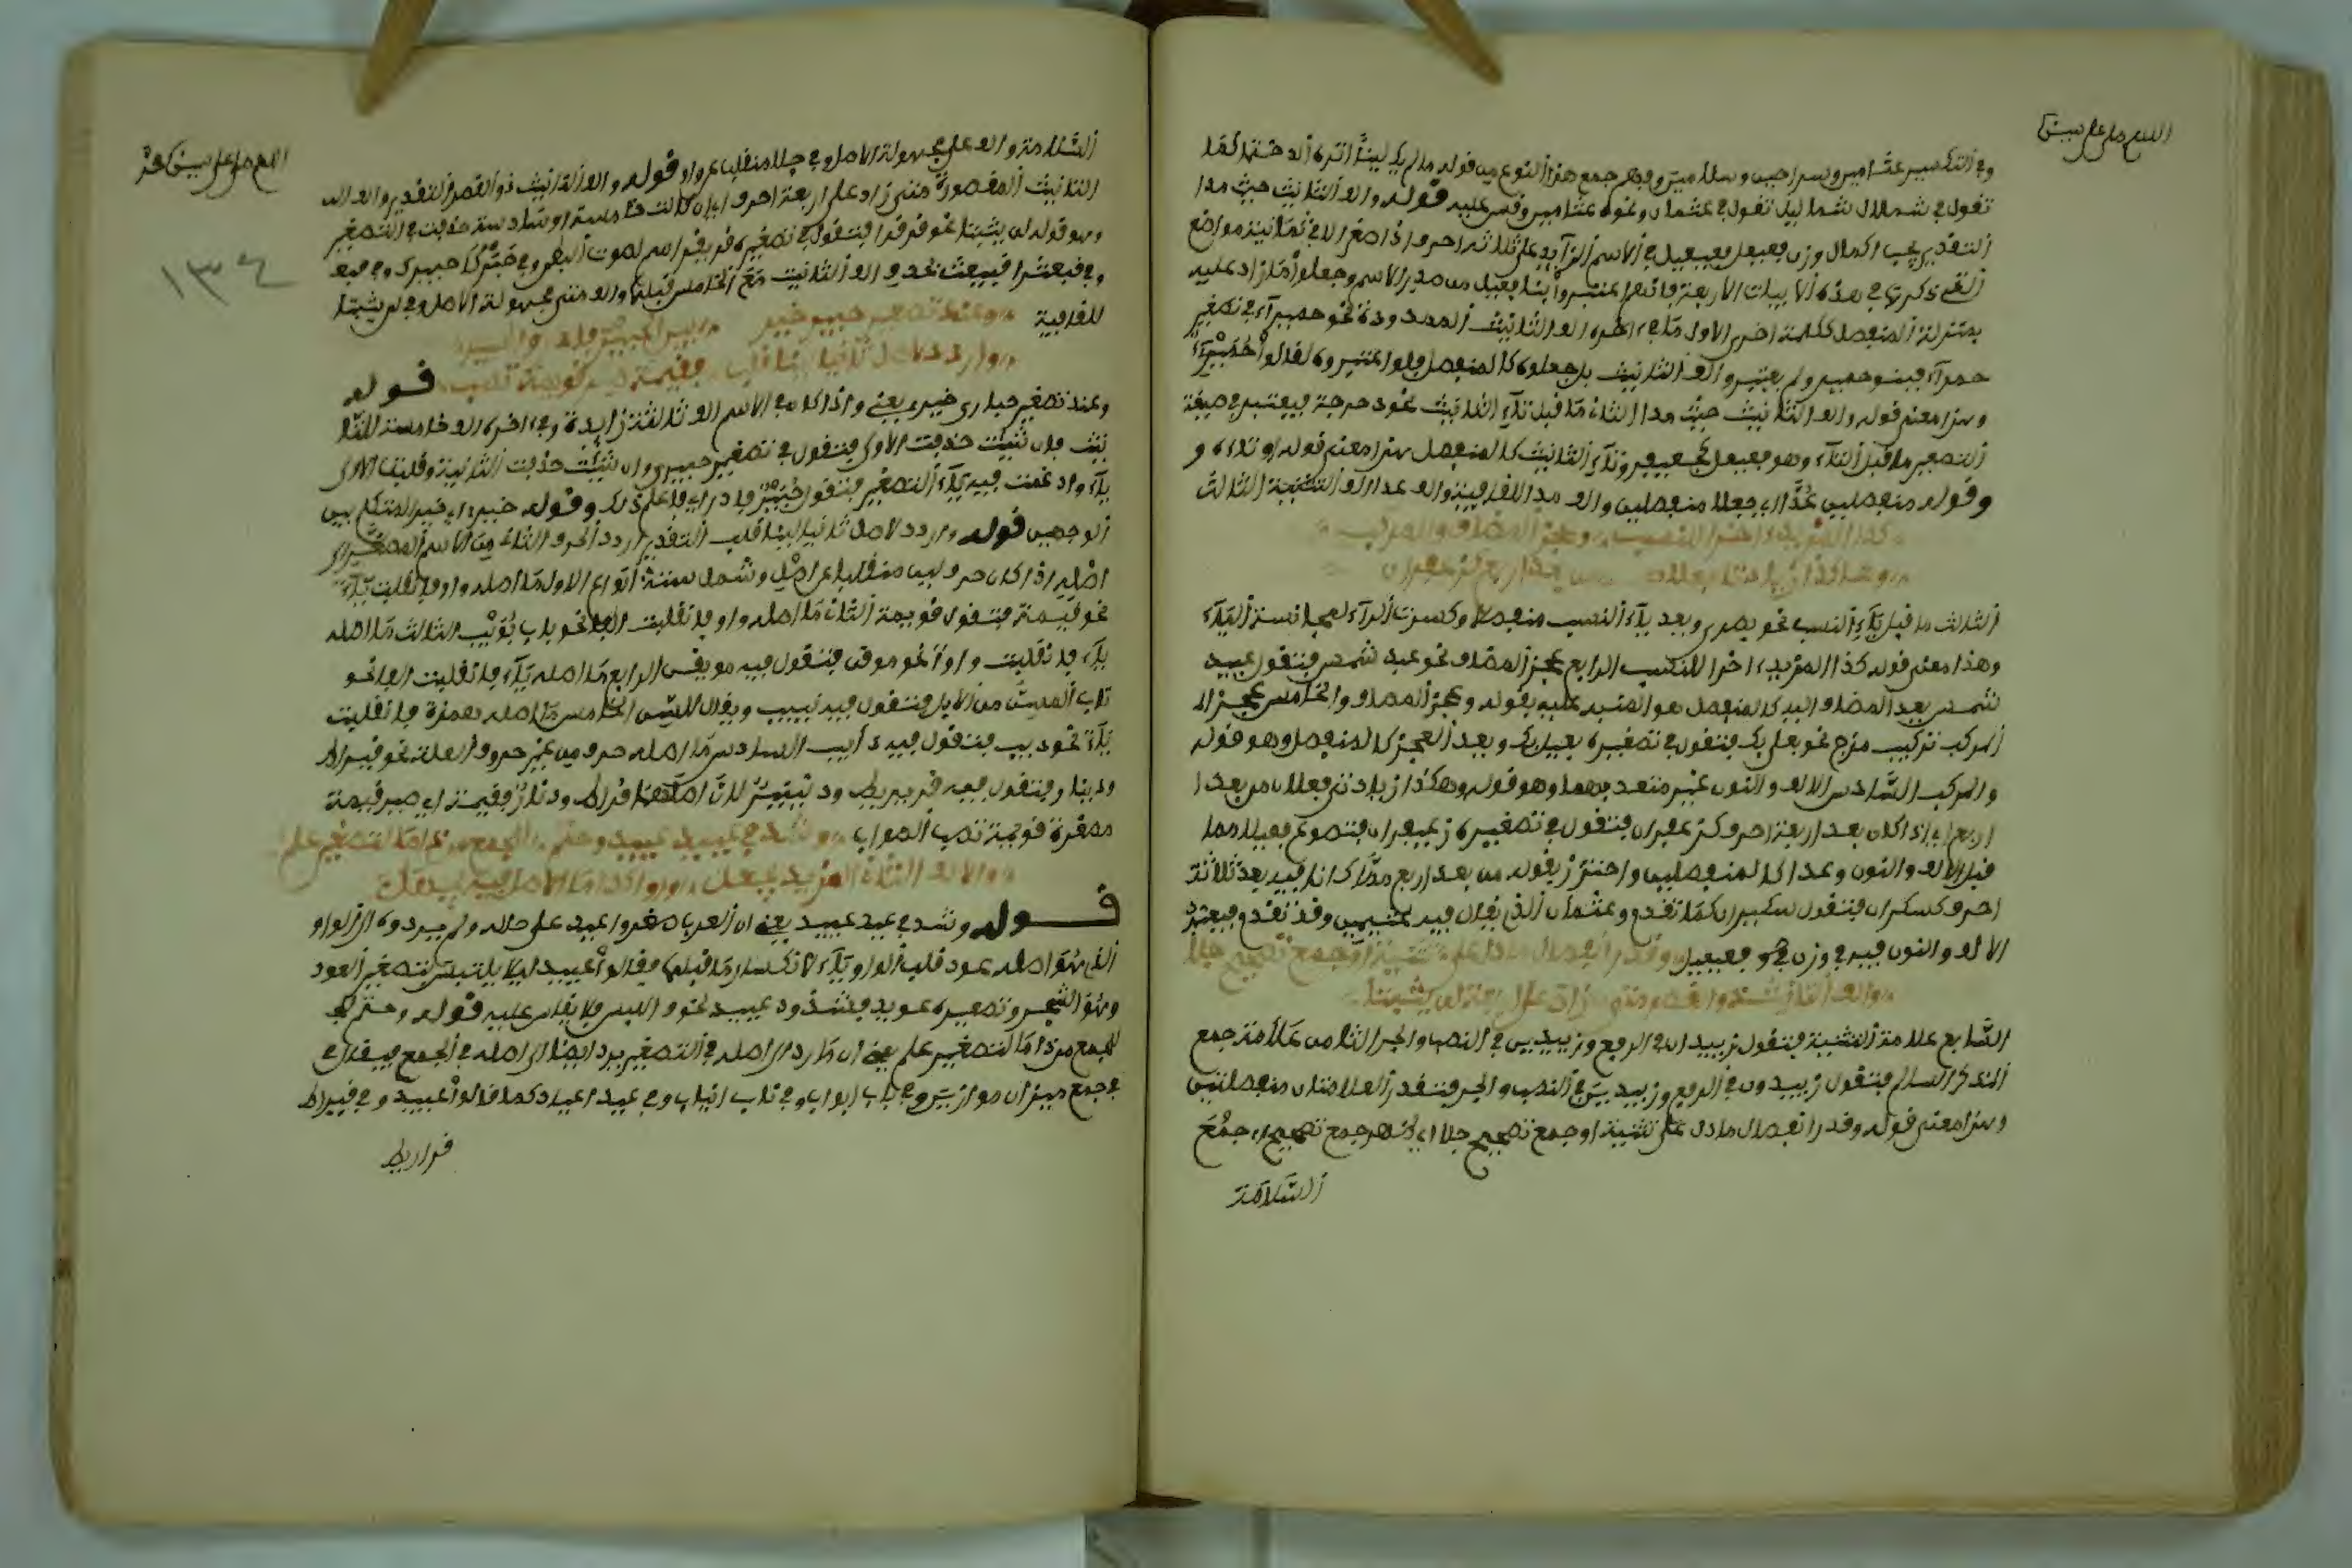 اللهم صل على سيدنا
وفي التكسير عثامير وسراحين وسلاميين وفهم جمع هذا النوع من قوله ما لم يكن لينا اثره الذ ختما كما
تقول في شملال شماليل تقول في عثمان ونحوه عثامين وقس عليه قوله والف التانيث حيث مدا
التقدير يجب اكمال وزن فعيعل فعيعيل في الاسم الزايد على ثلاثة احرف اذا صغر الا في ثمانية مواضع
التي ذكرها في هذه الابيات الاربعة فانهم اعتبروا بنا فعيل من صدر الاسم وجعلوا ما زاد عليه
بمنزلة المنفصل ككلمة اخرى الاول ما في اخره الف التانيث الممدودة نحو حميرآء في تصغير
حمرآء فبنو حمير ولم يعتبروا الف التانيث بل جعلوها كالمنفصل ولو اعتبروه لقالوا حميرآء
وهذا معنى قوله والف التانيث حيث مدا الثاني ما قبل تآء التانيث نحو دحرجة فيعتبر في صيغة
التصغير ما قبل التآء وهو فعيعل كجعيفر وتآء التانيث كالمنفصل هذا معنى قوله وتاؤه و
وقوله منفصلين عدا اي جعلا منفصلين والف مدا للافرقية والف عدا الف التثنية الثالث
كذا المزيد اخرا للنسب وعجز المضاف والمركب
وهكذا زيادتا فعلانا من بعد اربع كزعفران
الثالث ما قبل يآء النسب نحو بصري وبعد يآء النسب منفصلا وكسرت الرآء لمجانسة اليآء
وهذا معنى قوله كذا المزيد اخرا للنسب الرابع عجز المضاف نحو عبد شمس فتقول عبيد
شمس بعد المضاف اليه كالمنفصل هو المنبه عليه بقوله وعجز المضاف والخامس عجز ال
المركب تركيب مزج نحو بعلبك فتقول في تصغيره بعيلبك وبعد العجز كالمنفصل وهو قوله
والمركب السادس الالف والنون غير متعد بهما وهو قوله وهكذا زيادتي فعلان من بعد ا
اربع اي اذا كان بعد اربعة احرف كزعفران فتقول في تصغيره زعيفران فتصوغ فعيلل مما
قبل الالف والنون وعدا كالمنفصلين واحترز بقوله من بعد اربع مما كانا فيه بعد ثلاثة
احرف كسكران فتقول سكيران كما تقدم وعثمان الذي يقال فيه عثيمين وقد تقدم فيعتبر
الالف والنون فيه في وزن فعيعيل وقدر انفصال ما دل على تثنية او جمع تصحيح جلا
والف التانيث ذو القصر متى زاد على اربعة لن يثبتا
السابع علامة التثنية فتقول زييدان في الرفع وزييدين في النصب والجر الثامن علامة جمع
المذكر السالم فتقول زييدون في الرفع وزييدين في النصب والجر فتقدر العلامتان منفصلتين
وهذا معنى قوله وقدر انفصال ما دل على تثنية او جمع تصحيح جلا اي ظهر جمع تصحيح اي جمع
السلامة
اللهم صل على سيدنا محمد
١٣٤
السلامة والف على مجهولة الاصل وفي جلا منقلب عن واو قوله والف التانيث ذو القصر التقدير والف ال
التانيث المقصورة متى زاد على اربعة احرف اي اذا كانت خامسة او سادسة حذفت في التصغير
وهو قوله لن يثبتا نحو قرقرا فتقول في تصغيره قريقر اسم لصوت البطن وفي حبركا حبيرك وفي جمع
وفي قبعثرا قبيعث بحذف الف التانيث مع الخامس قبلها والف متى مجهولة الاصل وفي لن يثبتا
للقافية وعند تصغير حبارى خير بين الحبيرى فادر والحبير
واردد لاصل ثانيا لينا قلب فقيمة صير قويمة تصب قوله
وعند تصغير حبارى خير يعني واذا كان في الاسم الف ثالثة زايدة وفي اخره الف خامسة للتا
نيث فان شيت حذفت الاولى فتقول في تصغير حبيرى وان شيت حذفت الثانية وقلبت الاولى
يآء وادغمت فيه يآء التصغير فتقول حبير فادر اي فاعلم ذلك وقوله خير اي خير المتكلم بين
الوجهين قوله واردد لاصل ثانيا لينا قلب التقدير اردد الحرف الثاني من الاسم المصغر الى
اصله اذا كان حرف لين منقلبا عن اصل وشمل ستة انواع الاول ما اصله واو فانقلبت يآء
نحو قيمة فتقول قويمة الثاني ما اصله واو فانقلبت الفا نحو باب بويب الثالث ما اصله
يآء فانقلبت واوا نحو موقن فتقول فيه مييقن الرابع ما اصله يآء فانقلبت الفا نحو
ناب المسن من الابل فتقول فيه نييب ويقال للسن الخامس ما اصله همزة فانقلبت
يآء نحو ذيب فتقول فيه ذايب السادس ما اصله حرف من غير حروف العلة نحو قيراط
ودينار فتقول فيه قريريط ودنينير لان اصلهما قراط ودنار فقيمة اي صير قيمة
مصغرة قويمة تصب الصواب وشذ في عيد عييد وحتم للجمع من ذا ما لتصغير علم
والالف الثاني المزيد يجعل واوا كذا ما الاصل فيه يجهل
قوله وشذ في عيد عييد يعني ان العرب صغروا عيد على حاله ولم يردوه الى الواو
الذي هو اصله عود قلبت الواو يآء لانكسار ما قبلها فقالوا عييد ليلا يلتبس بتصغير العود
وهو الشجر وتصغيره عويد فشذوذ عييد لخوف اللبس فلا يقاس عليه قوله وحتم
للجمع من ذا ما لتصغير علم يعني ان ما رد الى اصله في التصغير يرد ايضا الى اصله في الجمع فيقال في
في جمع ميزان موازين وفي باب ابواب وفي ناب انياب وفي عيد اعياد كما قالوا عييد وفي قيراط
قراريط